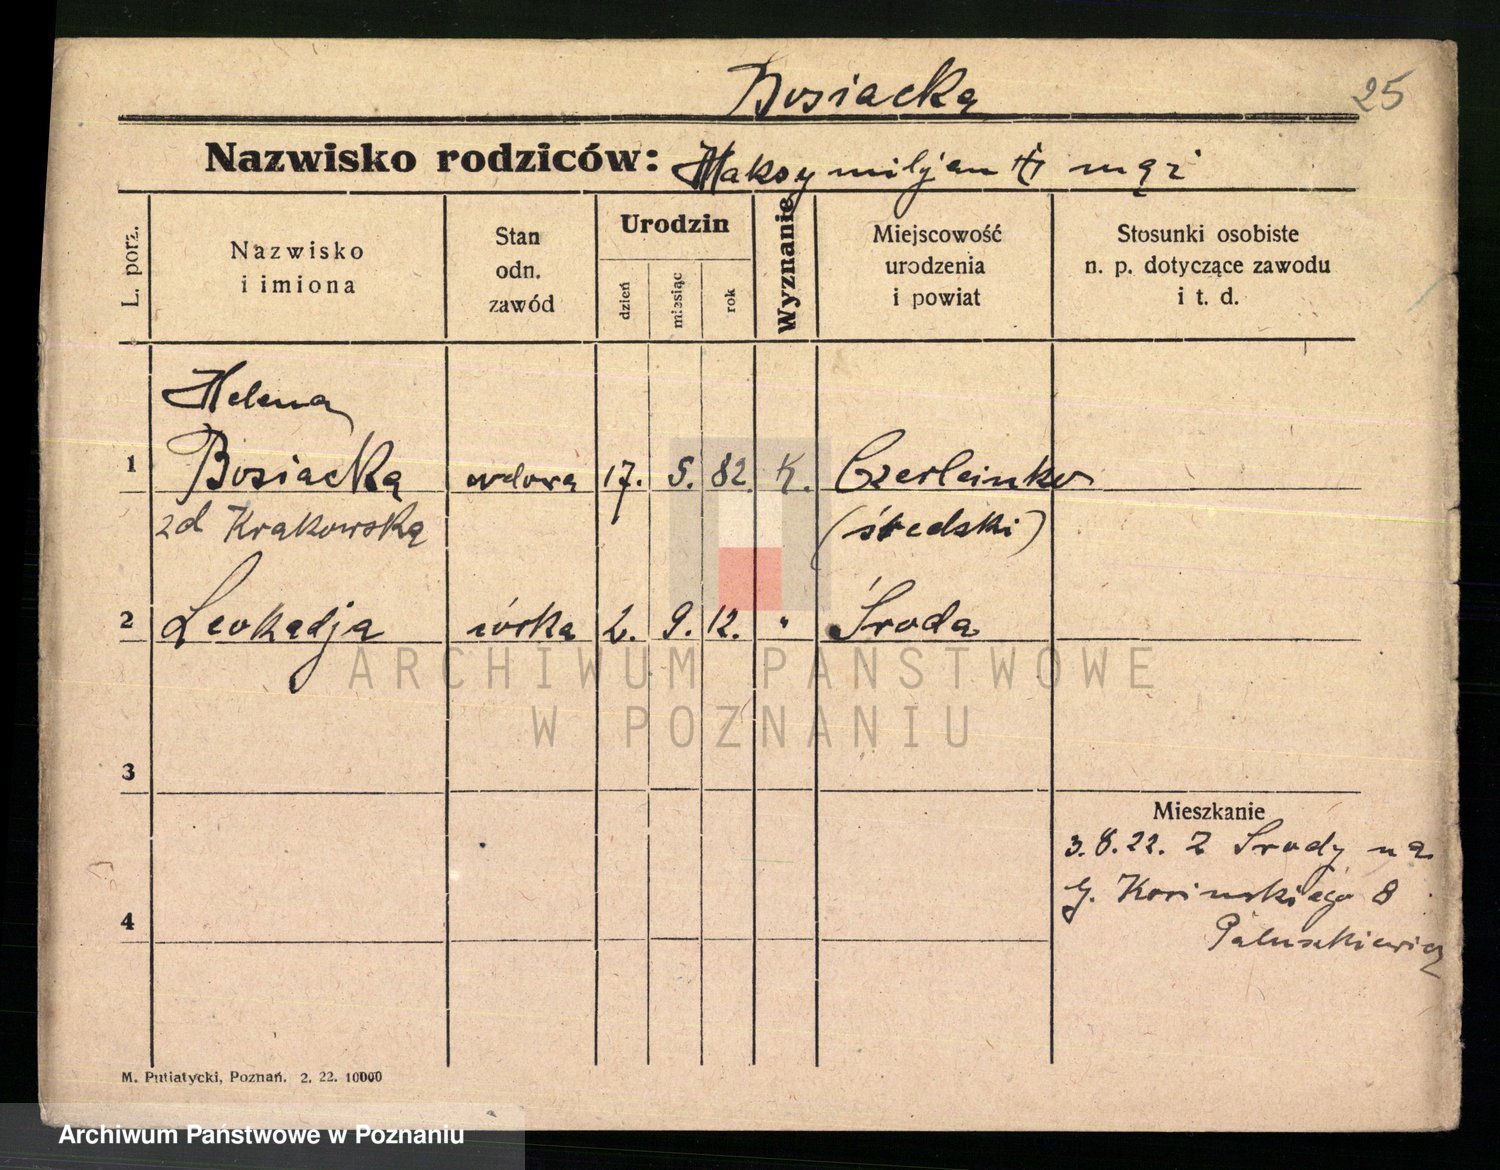 Bosiacka
25
Nazwisko rodziców: Maksymiljan mąż
L. porz.
Nazwisko
i imiona
Stan
odn.
zawód
Urodzin
dzień
miesiąc
rok
Wyznanie
Miejscowość
urodzenia
i powiat
Stosunki osobiste
n. p. dotyczące zawodu
i t. d.
Helena
1 Bosiacka wdowa 17. 5. 82. K. Czerleinko
zd Krakowska (średzki)
2 Leokadja córka 2. 9. 12. " Środa
3
Mieszkanie
3.8.22. Z Środy na
G. Kosińskiego 8
4
Paluszkiewicz
M. Putiatycki, Poznań. 2. 22. 10000
ARCHIWUM PAŃSTWOWE
W POZNANIU
Archiwum Państwowe w Poznaniu